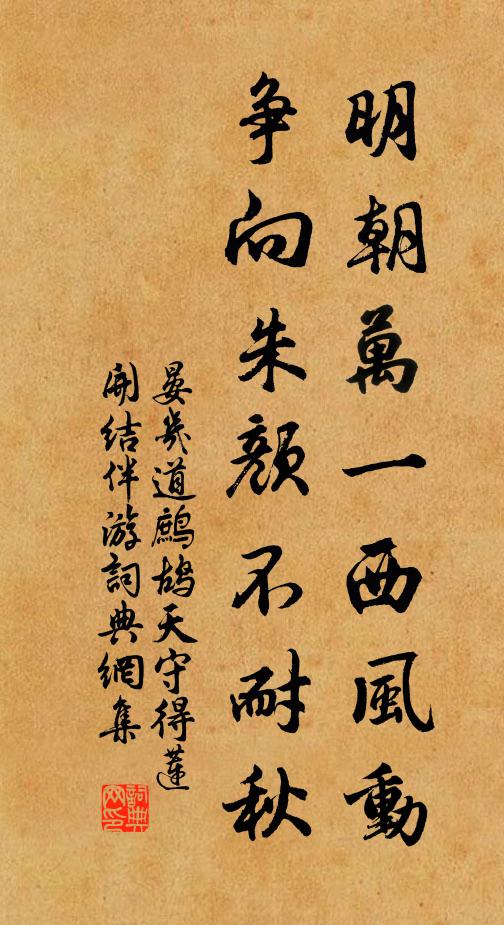 明朝萬一西風動
争向朱顏不耐秋
晏幾道鷓鴣天守得蓮
開結伴游詞典網集
詞典網印